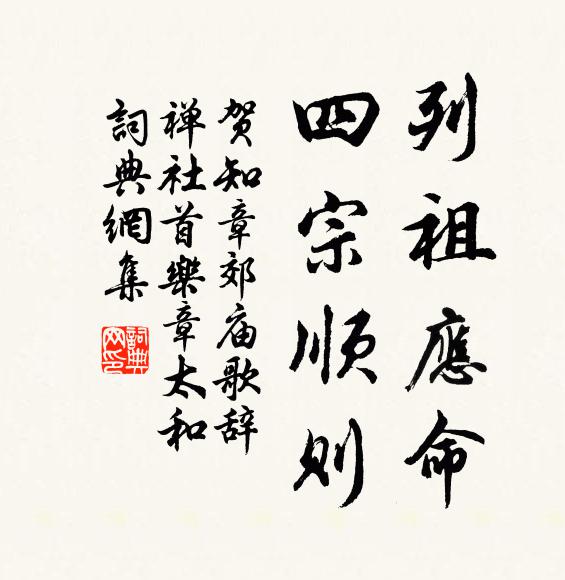 列祖應命
四宗順则
贺知章郊庙歌辞
禅社首樂章太和
詞典網集
詞典
网印